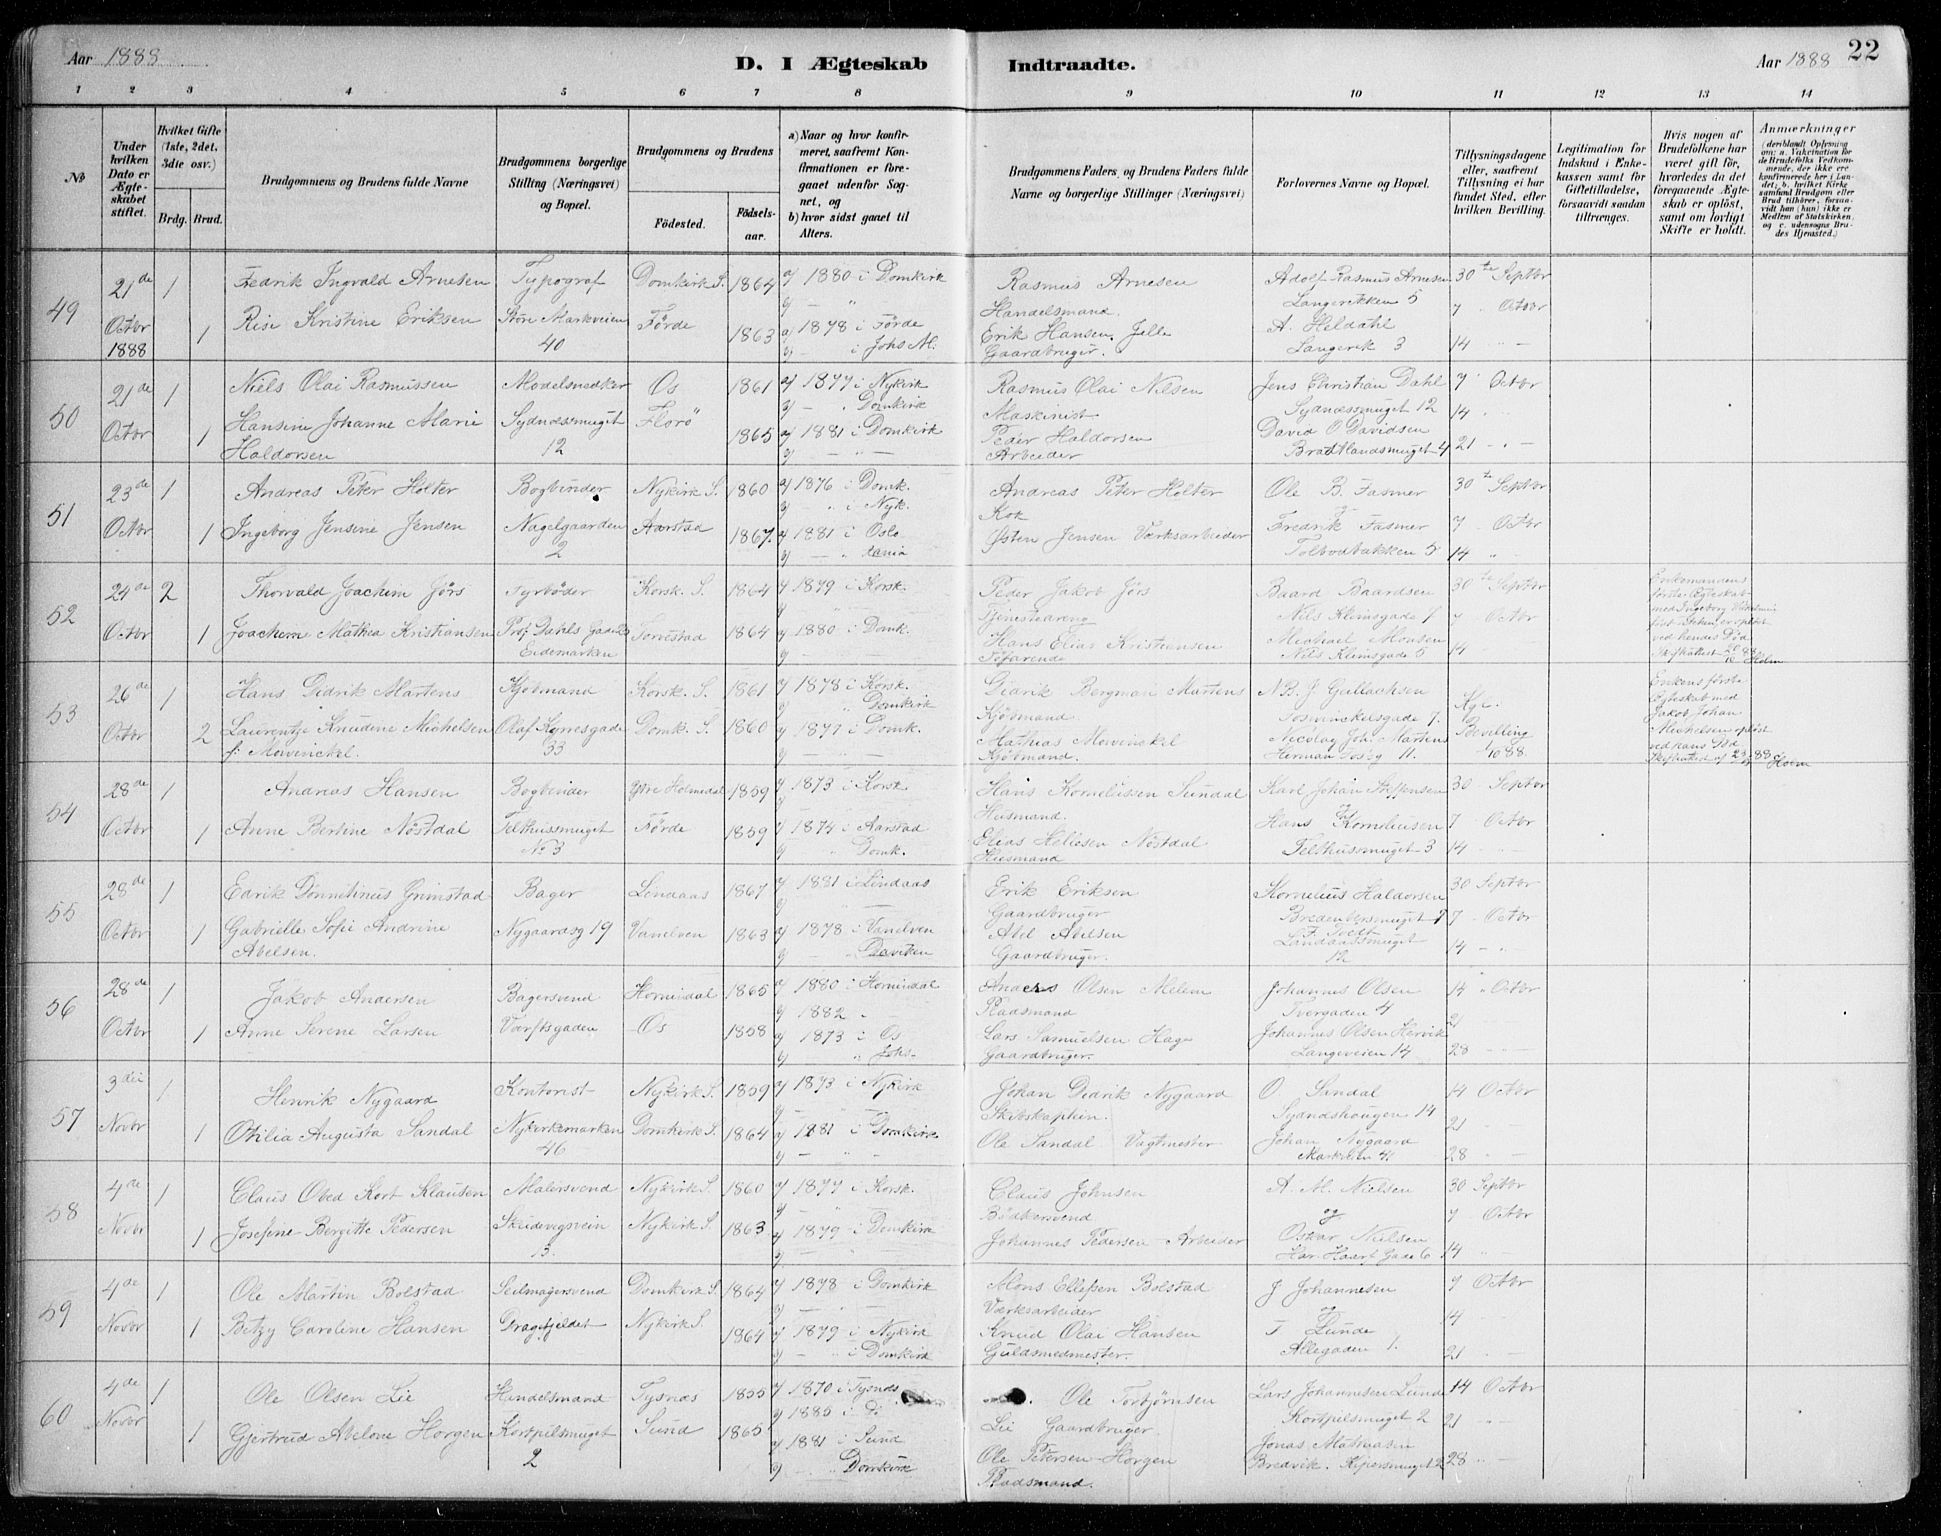 Aar 1888
D. I Ægteskab Indtraadte.
Aar 1888 22
1 2 3 4 5 6 7 8 9 10 11 12 13 14
No
Under hvilken Dato er Ægteskabet stiftet.
Hvilket Gifte (1ste, 2det, 3die osv.)
Brdg. Brud.
Brudgommens og Brudens fulde Navne
Brudgommens borgerlige Stilling (Næringsvei) og Bopæl.
Brudgommens og Brudens
Fødested. Fødselsaar.
a) Naar og hvor konfirmeret, saafremt Konfirmationen er foregaaet udenfor Sognet, og
b) hvor sidst gaaet til Alters.
Brudgommens Faders og Brudens Faders fulde Navne og borgerlige Stillinger (Næringsvei)
Forlovernes Navne og Bopæl.
Tillysningsdagene eller, saafremt Tillysning ei har fundet Sted, efter hvilken Bevilling.
Legitimation for Indskud i Enkekassen samt for Giftetilladelse, forsaavidt saadan tiltrænges.
Hvis nogen af Brudefolkene har været gift før, hvorledes da det foregaaende Ægteskab er opløst, samt om lovligt Skifte er holdt.
Anmærkninger (deriblandt Oplysning om: a. Vakcination for de Brudefolks Vedkommende, der ikke ere konfirmerede her i Landet; b. hvilket Kirkesamfund Brudgom eller Brud tilhører, forsaavidt han (hun) ikke er Medlem af Statskirken, og c. udensogns Brudes Hjemsted.)
49 21de 1 Fredrik Ingvald Arnesen Typograf Domkirk S. 1864 a) 1880 i Domkirk Rasmus Arnesen Adolf Rasmus Arnesen 30te Septbr
b) — " Handelsmand. Langevikken 5 7 Octbr
Octbr 1 Rise Kristine Eriksen Store Markveien Førde 1863 a) 1878 i Førde Erik Hansen Jelle A. Heldahl
1888 40 b) — i Johs M. Gaardbruger. Langevik 3 14 " —
50 21de 1 Niels Olai Rasmussen Modelsnedker Os 1861 a) 1877 i Nykirk Rasmus Olai Nilsen Jens Christian Dahl 7 Octbr
b) — " Domkirk Maskinist Sydnæssmuget 12 14 "
Octbr 1 Hansine Johanne Marie Sydnæssmuget Florö 1865 a) 1881 i Domkirk Peder Haldorsen David O Davidsen
Haldorsen 12 b) — " — Arbeider Bratlandsmuget 4 21 " —
51 23de 1 Andreas Peter Holter Bogbinder Nykirk S. 1860 a) 1876 i Domk. Andreas Peter Holter Ole B. Fasmer 30te Septbr
b) " i Nyk. Kok
Octbr 1 Ingeborg Jensine Jensen Nagelgaarden Aarstad 1867 a) 1881 i Oslo Østen Jensen Værksarbeider Fredrik Fasmer 7 Octbr
2 b) — " Tolbodbakken 5 14 "
52 24de 2 Thorvald Joachim Jörs Fyrböder Korsk. S. 1864 a) 1879 i Korsk. Peder Jakob Jörs Baard Baardsen 30te Septbr Enkemandens
b) " Nils Klimsgade 1 første Ægteskab
Octbr 1 Joachem Mathea Kristiansen Prof. Dahls Gade 1864 a) 1880 i Domk. Hans Elias Kristiansen Michael Monsen 7 Octbr med Ingeborg
Eidemarken b) — Søfarende Nils Klimsgade 5 14 ved hendes Död
Holm
53 26de 1 Hans Didrik Martens Kjöbmand Korsk. S. 1861 a) 1878 i Korsk. Didrik Bergman Martens N B. J Gullachsen Kgl. Enkens første
b) " Domkirk Kjöbmand. Fosvinckelsgade 7. Ægteskab med
Octbr 2 Laurentze Knudine Michelsen Olaf Kyrresgade Domk. S. 1860 a) 1877 i Domk. Mathias Mowinckel Nicolay Joh. Martens Bevilling Jakob Johan
f: Mowinckel. 33 b) — Kjöbmand. Herman Fossg 11. 88 Michelsen opløst
ved hans Död
Holm
54 28de 1 Andreas Hansen Bogbinder Ytre Holmedal 1859 a) 1873 i Korsk Hans Kornelissen Sundal Karl Johan Steffensen 30 Septbr
Husmand.
Octbr 1 Anne Bertine Nöstdal Telthussmuget Förde 1859 a) 1874 i Aarstad Elias Heliesen Nöstdal Hans Korneliusen 7 Octbr
No 3 " Domk. Husmand Telthussmuget 3 14
55 28de 1 Edrik Grimstad Bager Lindaas 1867 a) 1881 i Lindaas Erik Eriksen Kornelius Haldorsen 30 Septbr
b) — Gaardbruger 7 Octbr
Octbr 1 Gabrielle Sofie Andrine Nygaardsg 19 Vanelven 1863 a) 1878 i Vanelven Abel Abelsen F. Tvedt
Abelsen. b) — Daviken Gaardbruger. Landaassmuget 14 " —
12
56 28de 1 Jakob Andersen Bagersvend Hornindal 1865 a) 1880 i Hornindal Anders Olsen Melem Johannes Olsen 14 " Octbr
b) 1882 Pladsmand Tvergaden 4 21
Octbr 1 Anne Serene Larsen Værftsgaden Os 1858 a) 1873 i Os Lars Samuelsen Hage Johannes Olsen Hervik
b) " Johs. Gaardbruger. Langeveien 14 28 — —
57 3die 1 Henrik Nygaard Kontorist Nykirk S. 1859 a) 1873 i Nykirk Johan Didrik Nygaard O Sandal 14 Octbr
b) — Skibskaptein. Sydnæshaugen 14 21
Novbr 1 Otilia Augusta Sandal Nykirkemarken Domkirk S. 1864 a) 1881 i Domkirk Ole Sandal Vagtmester Johan Nygaard
46 b) — Markveien 41 28
58 4de 1 Claus Obed Kort Klausen Malersvend Nykirk S. 1860 a) 1877 i Korsk. Claus Johnsen A. M. Nielsen 30 Septbr
b) — Bödkersvend og 7 Octbr
Novbr 1 Josefine Bergitte Pedersen Skudevigsvein Nykirk S. 1863 a) 1879 i Domkirk Johannes Pedersen Arbeider Oskar Nielsen
13. b) — Har. Haarf. Gade 6 14 "
59 4de 1 Ole Martin Bolstad Seilmagersvend Domkirk S. 1864 a) 1878 i Domkirk Mons Ellefsen Bolstad J Johannesen 7 Octbr
b) Værksarbeider 14
Novbr 1 Betzy Caroline Hansen Dragefjeldet Nykirk S. 1864 a) 1879 i Nykirk Knud Olai Hansen Lunde
b) — " i Domkirk Guldsmedmester. Allegaden 1. 21
60 4de 1 Ole Olsen Lie Handelsmand Tysnæs 1855 a) 1870 i Tysnæs Ole Torbjörnsen Lars Johannesen Lunde 14 Octbr
b) 1885 i Do Lie Gaardbruger. Kortpilsmuget 2 21 "
Novbr 1 Gjertrud Abelone Horgen Kortpilsmuget Sund 1865 a) 1881 i Sund Ole Petersen Horgen Jonas Mathiasen
2 b) — " Domkirk Pladsmand. Bredvik. Kipersmuget 2 28 " —